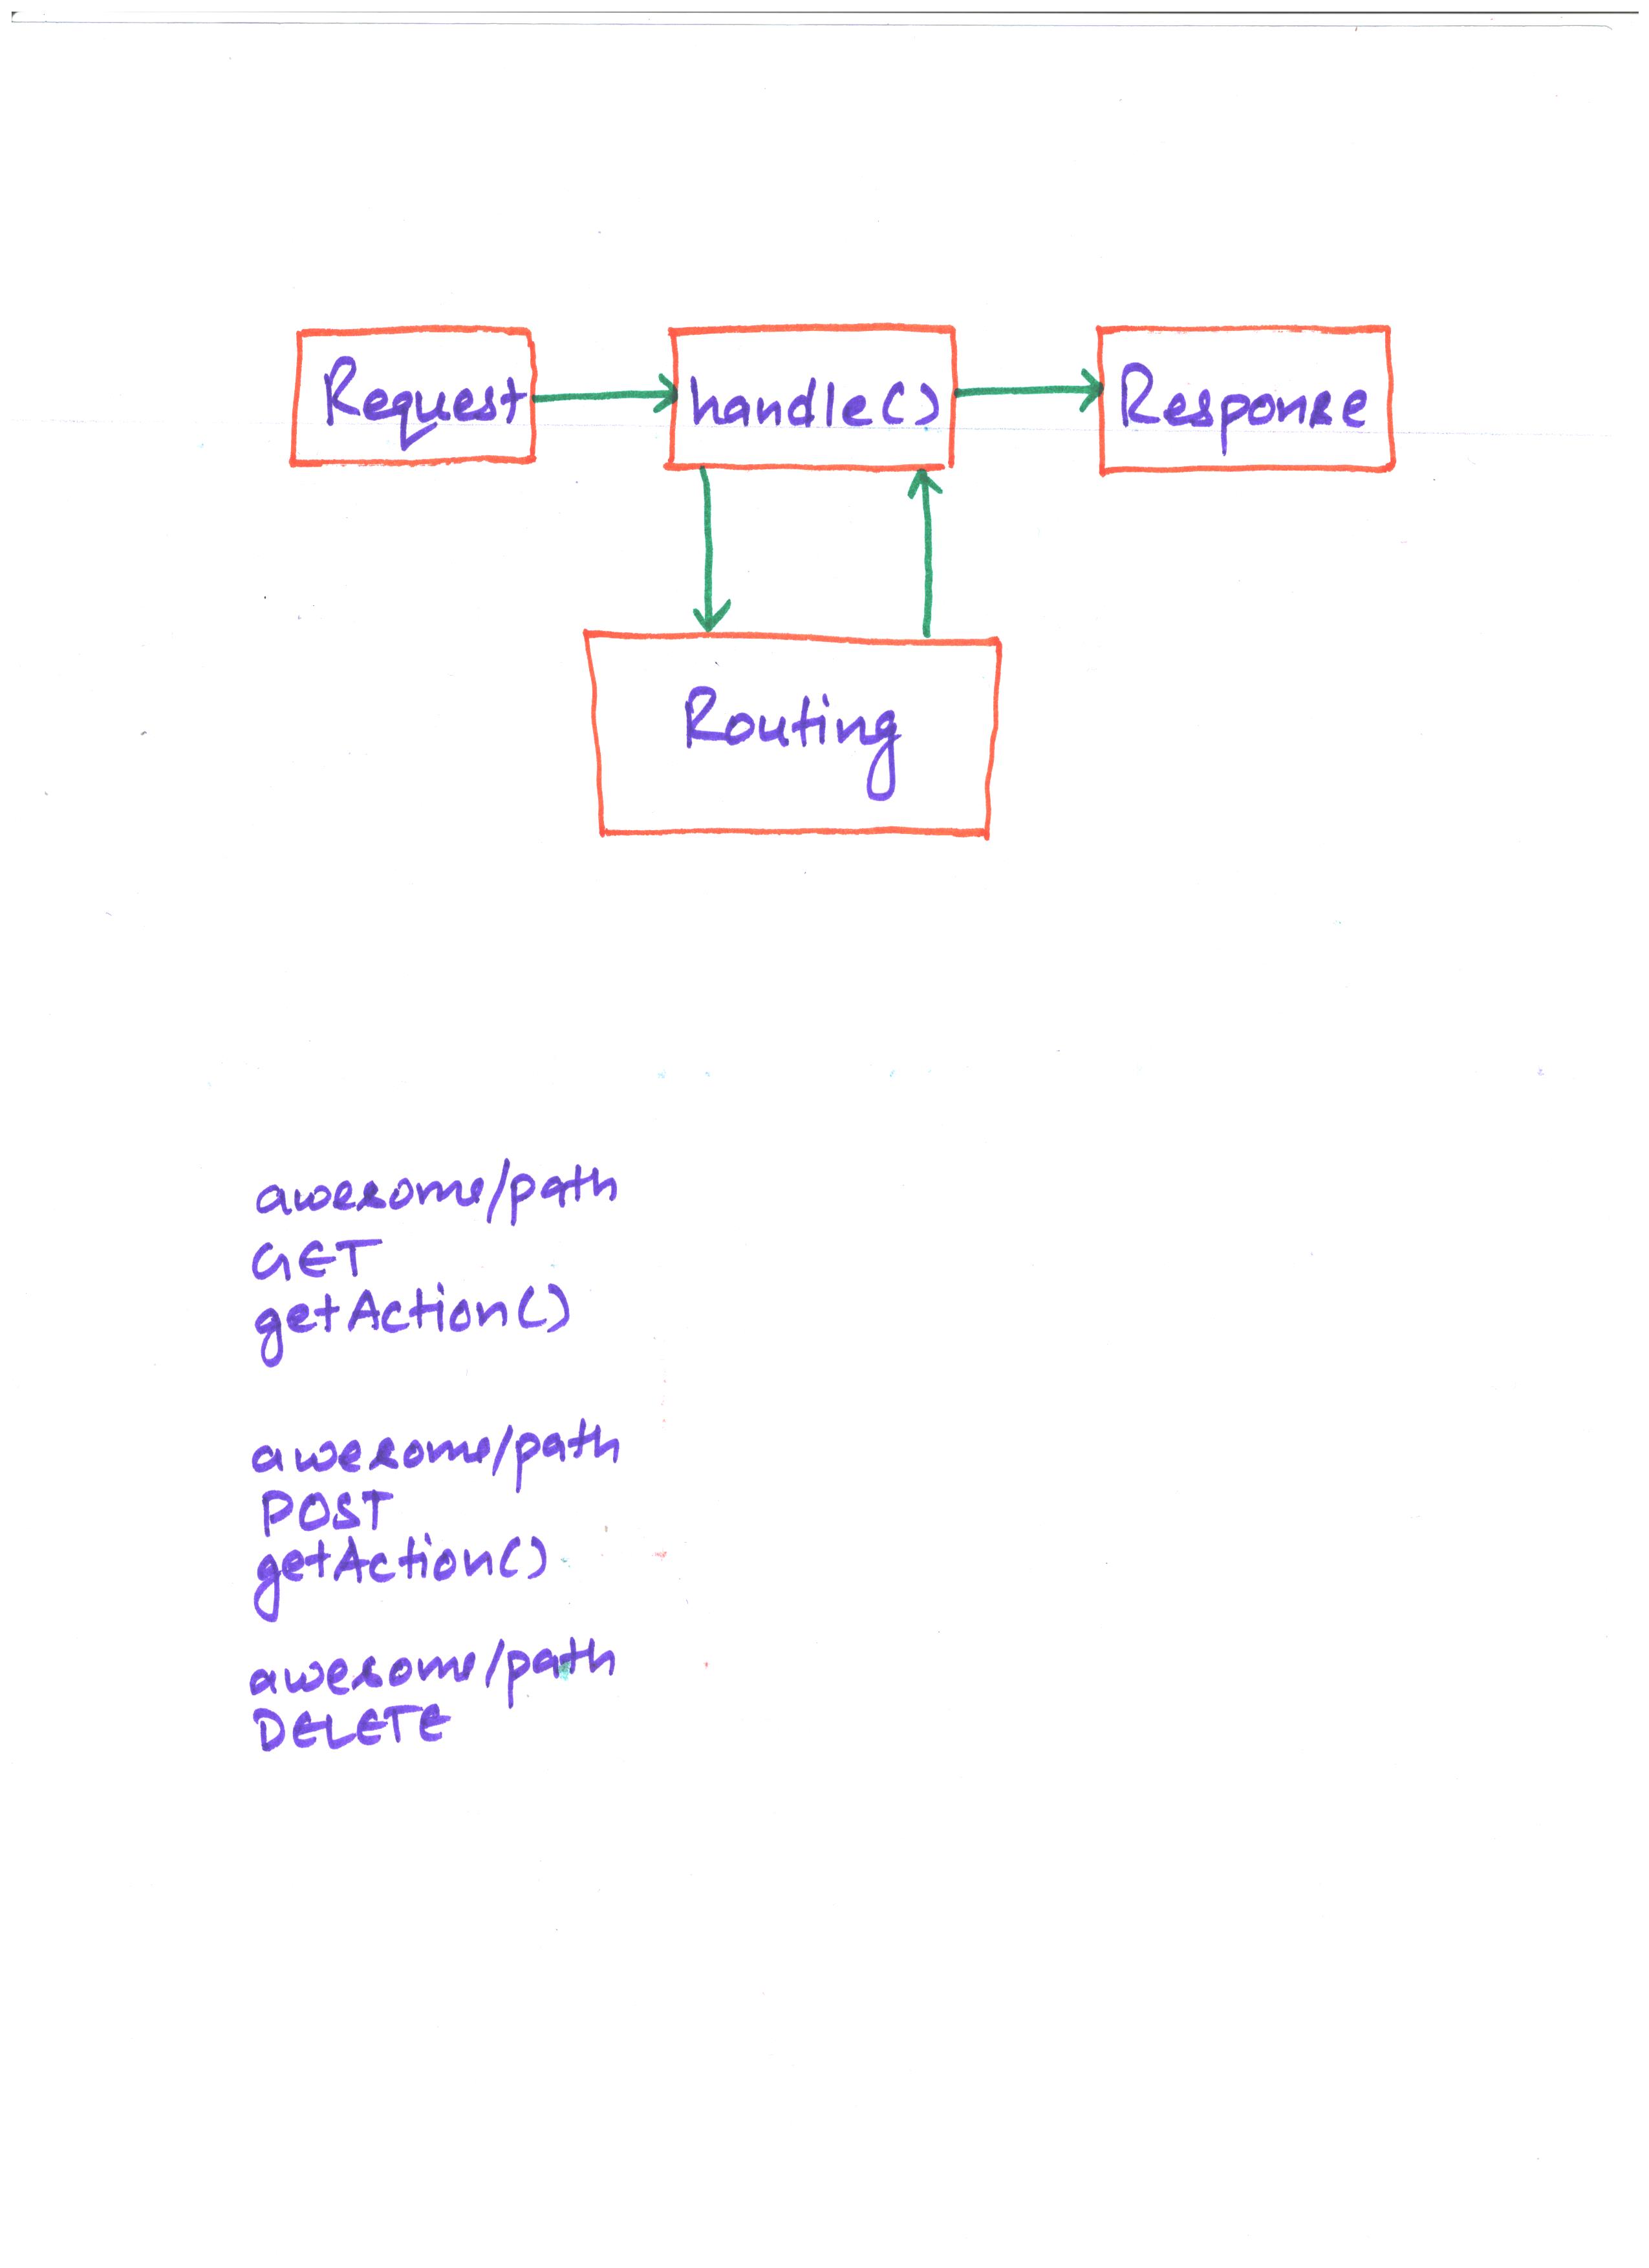 Request
handle()
Response
Routing
awesome/path
GET
getAction()
awesome/path
POST
getAction()
awesome/path
DELETE